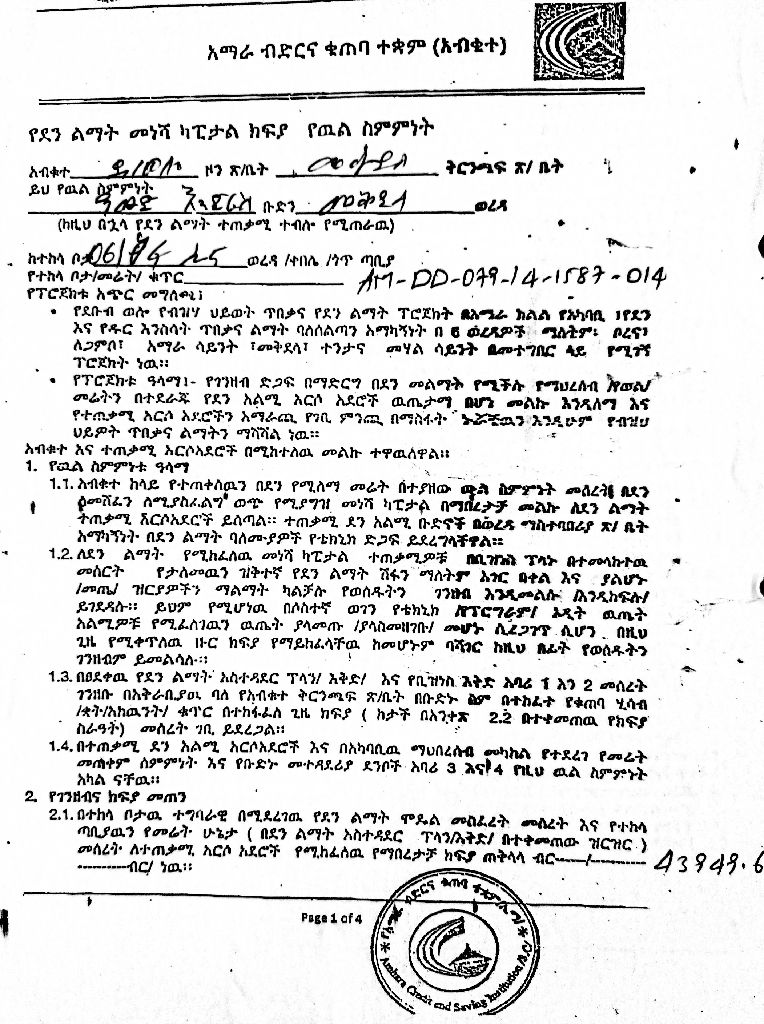 አማራ ብድርና ቁጠባ ተቋም (አብቁተ)
የደን ልማት መነሻ ካፒታል ክፍያ የዉል ስምምነት
አብቁተ ዞን ጽ/ቤት መቅደላ ቅርንጫፍ ጽ/ ቤት
ይህ የዉል ስምምነት
እንድሪስ ቡድን መቅደላ ወረዳ
(ከዚህ በኋላ የደን ልማት ተጠቃሚ ተብሎ የሚጠራዉ)
ከተከላ ቦታ 06 ወረዳ /ቀበሌ /ጎጥ ጣቢያ
የተከላ ቦታ/መሬት/ ቁጥር AM-DD-079-14-1587-014
የፕሮጀክቱ አጭር መግለጫ፤
• የደቡብ ወሎ የብዝሃ ህይወት ጥበቃና የደን ልማት ፕሮጀክት በአማራ ክልል የአካባቢ ፣የደን
እና የዱር እንስሳት ጥበቃና ልማት ባለስልጣን አማካኝነት በ 6 ወረዳዎች ማለትም፡ ቦረና፣
ለጋምቦ፣ አማራ ሳይንት ፣መቅደላ፣ ተንታና መሃል ሳይንት በመተግበር ላይ የሚገኝ
ፕሮጀክት ነዉ።
• የፕሮጀክቱ ዓላማ፡- የገንዘብ ድጋፍ በማድርግ በደን መልማት የሚችሉ የማህረሰብ /የወል/
መሬትን በተደራጁ የደን አልሚ አርሶ አደሮች ዉጤታማ በሆነ መልኩ እንዲለማ እና
የተጠቃሚ አርሶ አደሮችን አማራጪ የገቢ ምንጪ በማስፋት ኑሯቸዉን እንዲሁም የብዝሃ
ህይዎት ጥበቃና ልማትን ማሻሻል ነዉ።
አብቁተ እና ተጠቃሚ አርሶአደሮች በሚከተለዉ መልኩ ተዋዉለዋል።
1. የዉል ስምምነቱ ዓላማ
1.1. አብቁተ ከላይ የተጠቀሰዉን በደን የሚለማ መሬት በተያዘዉ ውል ስምምነት መሰረት በደን
ለመሸፈን ለሚያስፈልግ ወጭ የሚያግዝ መነሻ ካፒታል በማበረታቻ መልኩ ለደን ልማት
ተጠቃሚ አርሶአደሮች ይሰጣል። ተጠቃሚ ደን አልሚ ቡድኖች በወረዳ ማስተባበሪያ ጽ/ ቤት
አማካኝነት በደን ልማት ባለሙያዎች የቴክኒክ ድጋፍ ይደረገላቸዋል።
1.2. ለደን ልማት የሚከፈለዉ መነሻ ካፒታል ተጠቃሚዎቹ በቢዝነስ ፕላኑ በተመላከተዉ
መሰርት የታለመዉን ዝቅተኛ የደን ልማት ሽፋን ማለትም አገር በቀል እና ያልሆኑ
/መጤ/ ዝርያዎችን ማልማት ካልቻሉ የወሰዱትን ገንዘብ እንዲመልሱ /እንዲከፍሉ/
ይገደዳሉ። ይህም የሚሆነዉ በሶስተኛ ወገን የቴክኒክ /የፕሮግራም/ ኦዲት ዉጤት
አልሚዎቹ የሚፈለገዉን ዉጤት ያላመጡ /ያላስመዘገቡ/ መሆኑ ሲረጋገጥ ሲሆን በዚህ
ጊዜ የሚቀጥለዉ ዙር ክፍያ የማይከፈላቸዉ ከመሆኑም ባሻገር ከዚህ በፊት የወሰዱትን
ገንዘብም ይመልሳሉ።
1.3. በፀደቀዉ የደን ልማት አስተዳደር ፕላን/ እቅድ/ እና የቢዝነስ እቅድ አባሪ 1 እን 2 መሰረት
ገንዘቡ በአቅራቢያዉ ባለ የአብቁተ ቅርንጫፍ ጽ/ቤት በቡድኑ ስም በተከፈተ የቁጠባ ሂሳብ
/ቋት/አካዉንት/ ቁጥር በተከፋፈለ ጊዜ ክፍያ ( ከታች በአንቀጽ 2.2 በተቀመጠዉ የክፍያ
ስራዓት) መሰረት ገቢ ይደረጋል።
1.4. በተጠቃሚ ደን አልሚ አርሶአደሮች እና በአካባቢዉ ማህበረሰብ መካከል የተደረገ የመሬት
መጠቀም ስምምነት እና የቡድኑ መተዳደሪያ ደንቦች አባሪ 3 እና 4 የዚህ ዉል ስምምነት
አካል ናቸዉ።
2. የገንዘብና ክፍያ መጠን
2.1. በተከላ ቦታዉ ተግባራዊ በሚደረገዉ የደን ልማት ሞዴል መስፈረት መሰረት እና የተከላ
ጣቢያዉን የመሬት ሁኔታ ( በደን ልማት አስተዳደር ፕላን/እቅድ/ በተቀመጠው ዝርዝር )
መሰረት ለተጠቃሚ አርሶ አደሮች የሚከፈለዉ የማበረታቻ ክፍያ ጠቅላላ ብር-----/---------- 43949.6
----------ብር/ ነዉ።
Page 1 of 4
የአማራ ብድርና ቁጠባ ተቋም
Amhara Credit and Saving Institution /S.C/